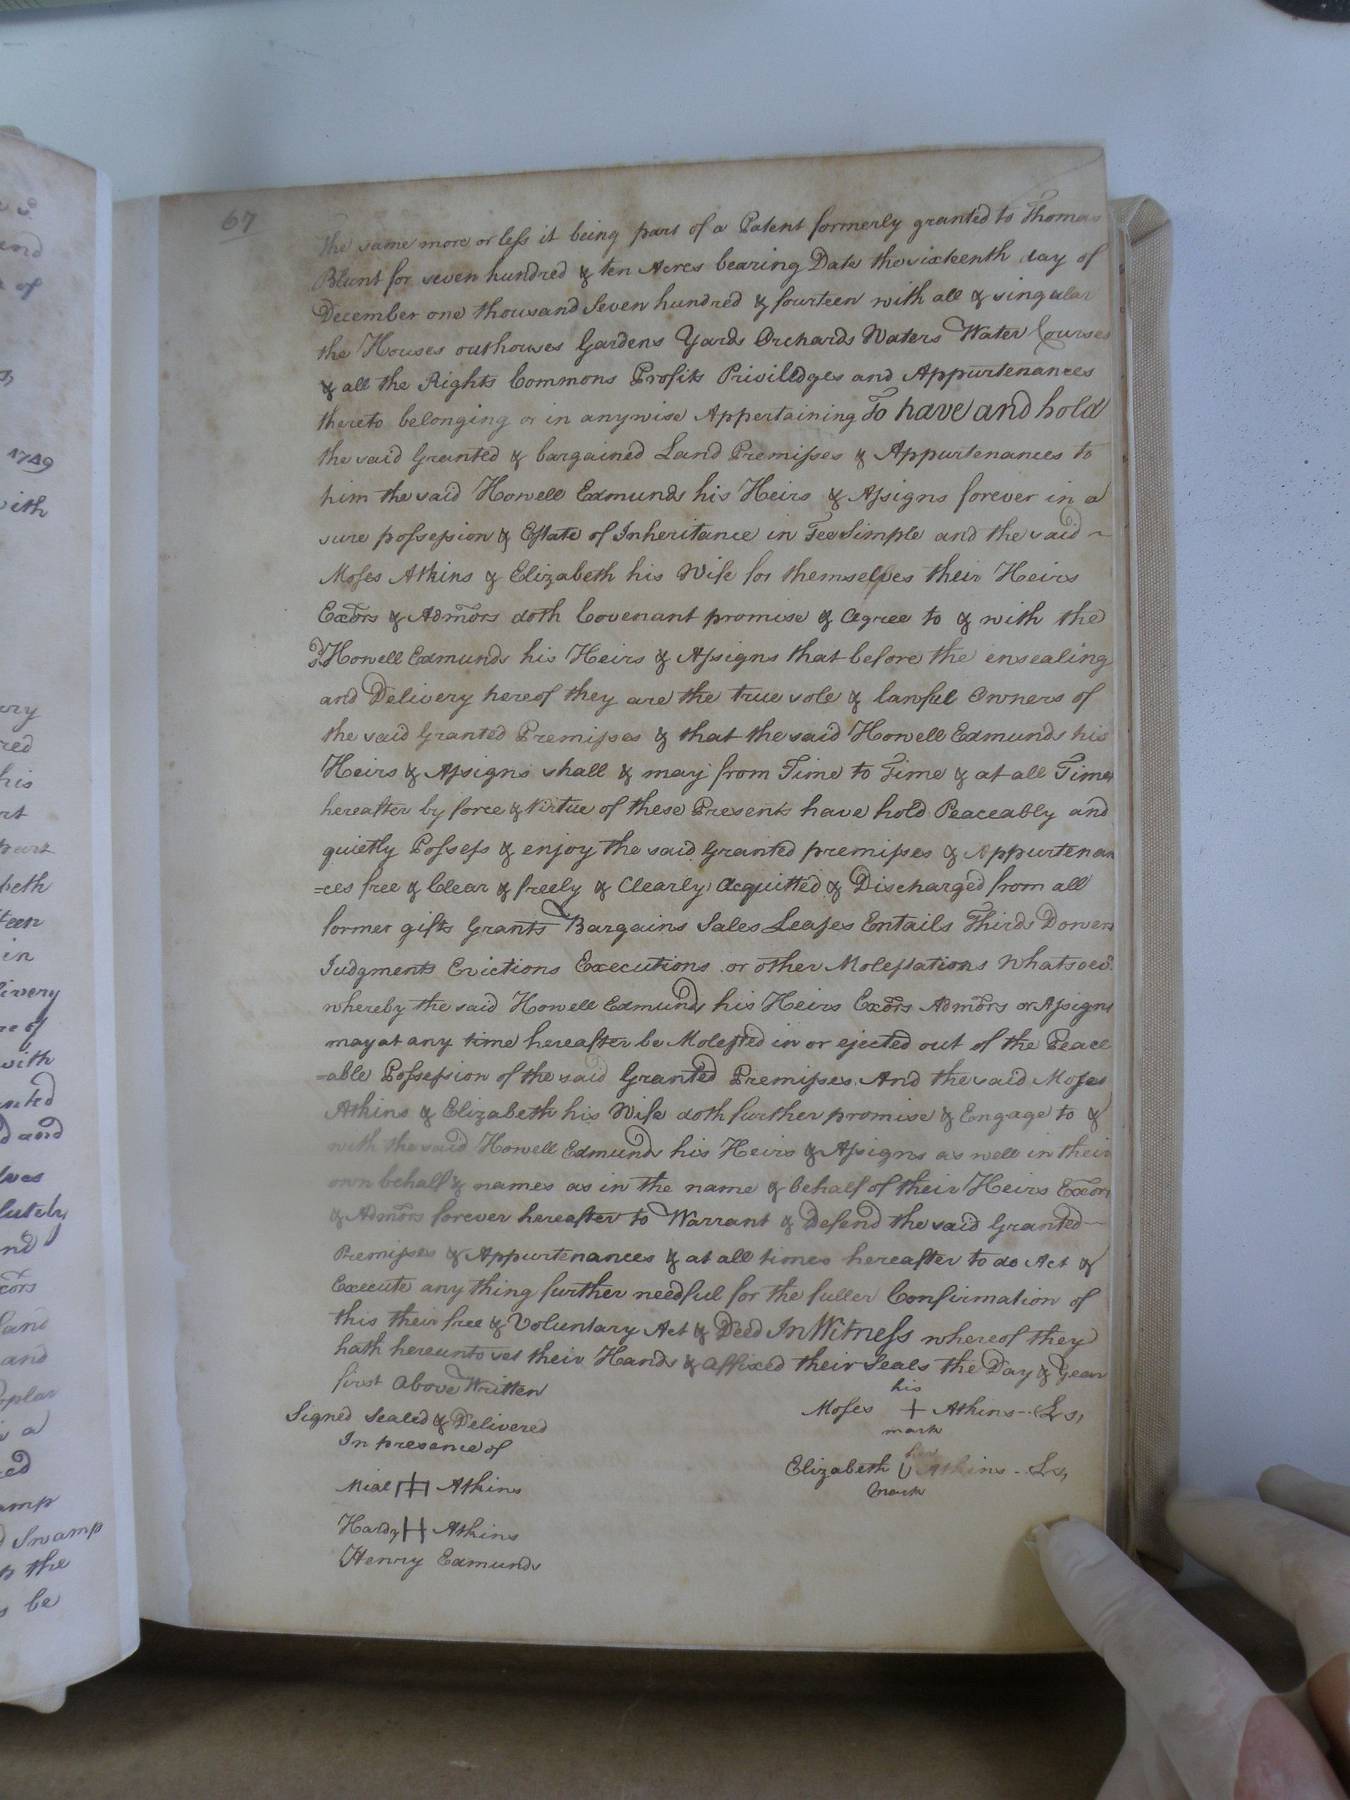 67
The same more or less it being part of a Patent formerly granted to Thomas
Blunt for seven hundred & ten Acres bearing Date the sixteenth day of
December one thousand Seven hundred & fourteen with all & singular
the Houses outhouses Gardens Yards Orchards Waters Water Courses
& all the Rights Commons Profits Priviledges and Appurtenances
thereto belonging or in anywise Appertaining To have and hold
the said Granted & bargained Land Premisses & Appurtenances to
him the said Howell Edmunds his Heirs & Assigns forever in a
sure possession & Estate of Inheritance in Fee Simple and the said ~
Moses Atkins & Elizabeth his Wife for themselves their Heirs
Exõrs & Admõrs doth Covenant promise & Agree to & with the
sd. Howell Edmunds his Heirs & Assigns that before the ensealing
and Delivery hereof they are the true sole & lawful Owners of
the said Granted Premisses & that the said Howell Edmunds his
Heirs & Assigns shall & may from Time to Time & at all Times
hereafter by force & Virtue of these Presents have hold Peaceably and
quietly Possess & enjoy the said Granted premisses & Appurtenan
=ces free & Clear & freely & Clearly Acquitted & Discharged from all
former gifts Grants Bargains Sales Leases Entails Thirds Dowers
Judgments Evictions Executions or other Molestations Whatsoer.
whereby the said Howell Edmunds his Heirs Exõrs Admõrs or Assigns
may at any time hereafter be Molested in or ejected out of the Peace
=able Possession of the said Granted Premisses. And the said Moses
Atkins & Elizabeth his Wife doth further promise & Engage to &
with the said Howell Edmunds his Heirs & Assigns as well in their
own behalf & names as in the name & behalf of their Heirs Exõrs
& Admõrs forever hereafter to Warrant & Defend the said Granted
Premisses & Appurtenances & at all times hereafter to do Act &
Execute any thing further needful for the fuller Confirmation of
this their free & Voluntary Act & Deed In Witness whereof they
hath hereunto set their Hands & Affixed their Seals the Day & Year
first Above Written
his
Signed Sealed & Delivered Moses + Atkins -- Ls,
In presence of mark
her
Mial Atkins Elizabeth U Atkins -- Ls,
mark
Hardy H Atkins
Henry Edmunds
1749
with